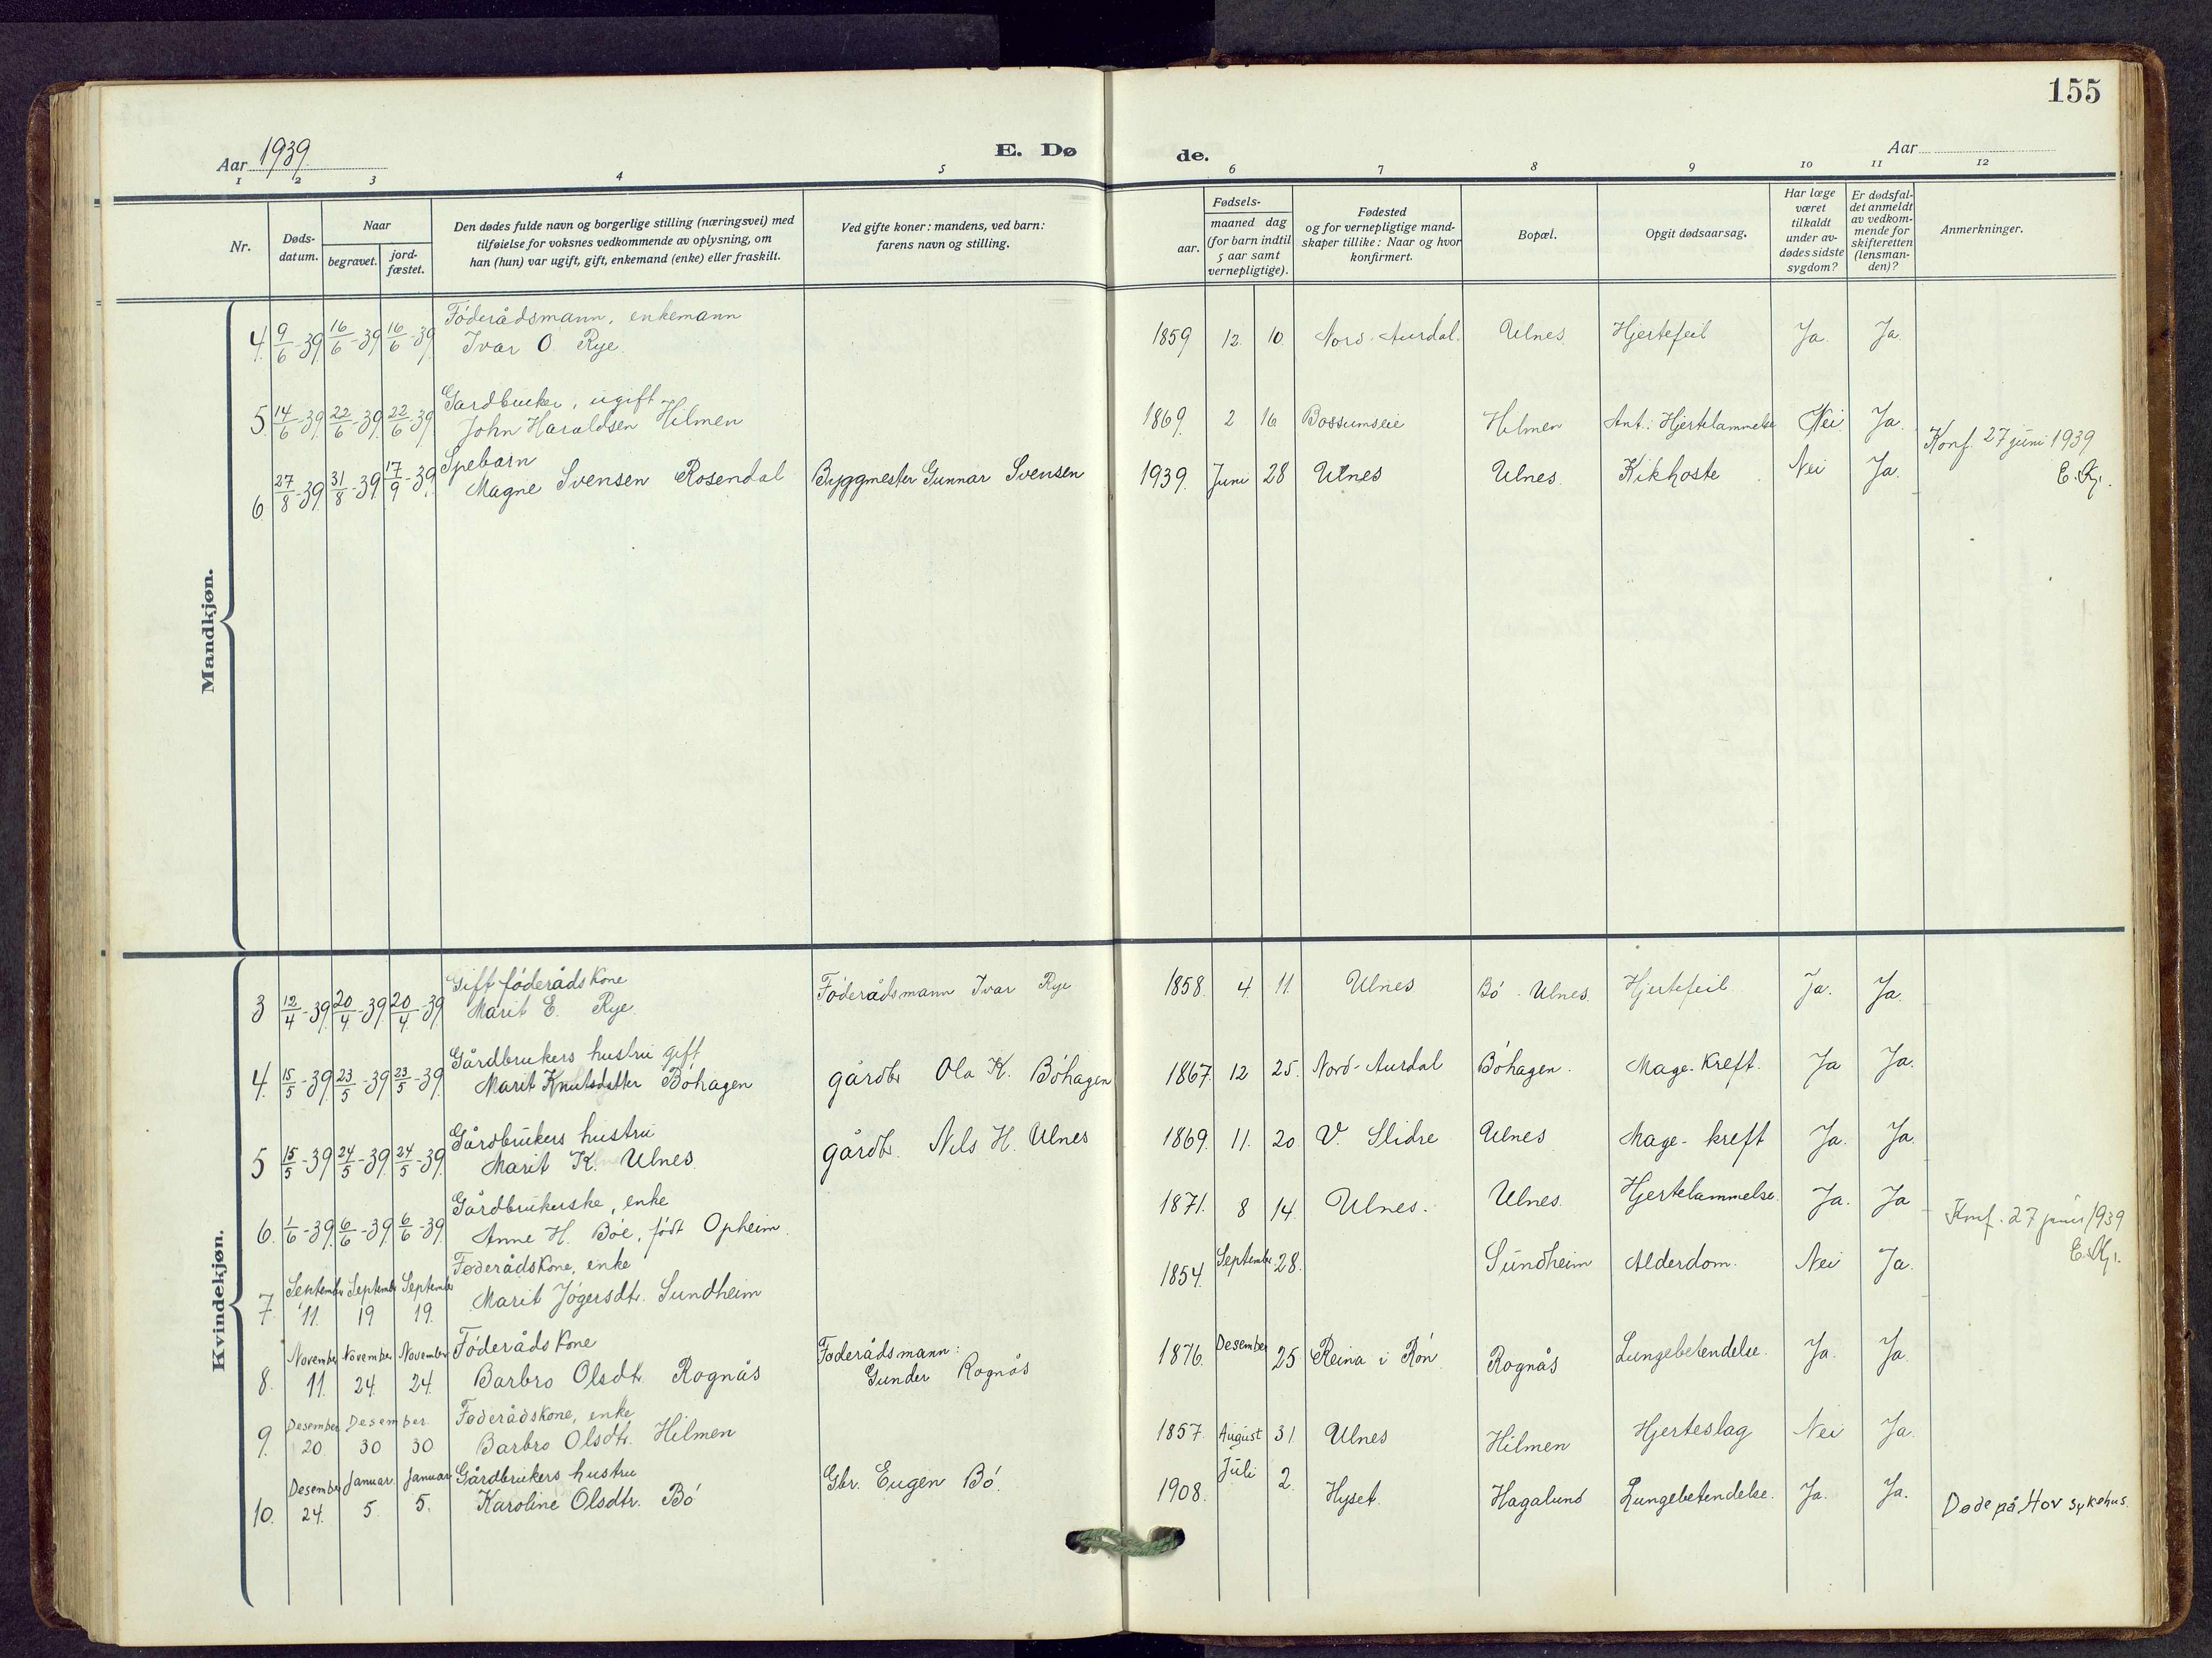 155
Aar 1939
E. Døde.
Aar
1 2 3 4 5 6 7 8 9 10 11 12
Nr.
Døds-datum.
Naar
begravet.
jord-fæstet.
Den dødes fulde navn og borgerlige stilling (næringsvei) med
tilføielse for voksnes vedkommende av oplysning, om
han (hun) var ugift, gift, enkemand (enke) eller fraskilt.
Ved gifte koner: mandens, ved barn:
farens navn og stilling.
Fødsels-
aar.
maaned dag
(for barn indtil
5 aar samt
vernepligtige).
Fødested
og for vernepligtige mand-
skaper tillike: Naar og hvor
konfirmert.
Bopæl.
Opgit dødsaarsag.
Har læge
været
tilkaldt
under av-
dødes sidste
sygdom?
Er dødsfal-
det anmeldt
av vedkom-
mende for
skifteretten
(lensman-
den)?
Anmerkninger.
Mandkjøn.
Føderådsmann, enkemann
4. 9/6-39 16/6-39 16/6-39 Ivar O. Rye. 1859 12. 10. Nord-Aurdal. Ulnes. Hjertefeil Ja. Ja.
Gardbruker, ugift
5. 14/6-39 22/6-39 22/6-39 John Haraldsen Hilmen 1869. 2 16 Hilmen Ant.: Hjertelammelse Nei Ja.
Konf. 27 juni 1939
E. Kj.
Spebarn
6. 27/8-39 31/8-39 17/9-39 Magne Svensen Rosendal Byggmester Gunnar Svensen 1939. Juni 28 Ulnes Ulnes. Kikhoste Nei Ja.
Kvindekjøn.
Gift føderådskone
3 12/4-39 20/4-39 20/4-39 Marit E. Rye. Føderådsmann Ivar Rye 1858. 4. 11. Ulnes Bø - Ulnes. Hjertefeil Ja. Ja.
Gårdbrukers hustru gift
4. 15/5-39 23/5-39 23/5-39 Marit Knutsdatter Bøhagen gårdbr. Ola K. Bøhagen 1867. 12 25. Nord-Aurdal Bøhagen. Mage-kreft. Ja Ja.
Gårdbrukers hustru
5 15/5-39 24/5-39 24/5-39 Marit K. Ulnes. gårdb. Nils H. Ulnes 1869. 11. 20 V. Slidre Ulnes Mage-kreft Ja. Ja.
Gårdbrukerske, enke
6. 1/6-39 6/6-39 6/6-39 Anne H. Bøe, født Opheim. 1871. 8 14. Ulnes. Ulnes. Hjertelammelse. Ja. Ja
Konf. 27 juni 1939
E. Kj.
Føderådskone, enke
7 September 11. September 19 September 19. Marit Jøgersdt. Sundheim 1854. September 28. Sundheim Alderdom. Nei Ja.
Føderådskone
8. November 11. November 24. November 24. Barbro Olsdt. Rognås Føderådsmann:
Gunder Rognås 1876. Desember 25 Reina i Røn Rognås Lungebetendelse. Ja. Ja.
Føderådskone, enke
9. Desember 20. Desember 30 30 Barbro Olsdt. Hilmen 1857. August 31 Ulnes Hilmen Hjerteslag Nei Ja.
Gårdbrukers hustru
10. Desember 24. Januar. 5. Januar 5. Karoline Olsdtr. Bø Gbr. Eugen Bø. 1908. Juli 2. Hyset. Hagalund Lungebetendelse. Ja. Ja. Døde på Hov sykehus.